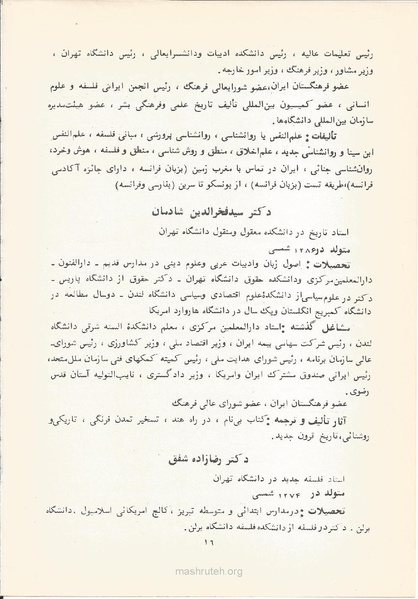 رئیس تعلیمات عالیه ، رئیس دانشکده ادبیات ودانشسرایعالی ، رئیس دانشگاه تهران ،
وزیر مشاور ، وزیر فرهنگ ، وزیر امور خارجه .
عضو فرهنگستان ایران،عضو شورایعالی فرهنگ ، رئیس انجمن ایرانی فلسفه و علوم
انسانی ، عضو کمیسیون بین‌المللی تألیف تاریخ علمی وفرهنگی بشر ، عضو هیئت‌مدیره
سازمان بین‌المللی دانشگاه‌ها.
تألیفات : علم‌النفس یا روانشناسی ، روانشناسی پرورشی ، مبانی فلسفه ، علم‌النفس
ابن سینا و روانشناسی جدید ، علم‌اخلاق ، منطق و روش شناسی ، منطق و فلسفه ، هوش وخرد،
روان‌شناسی جنائی ، ایران در تماس با مغرب زمین (بزبان فرانسه ، دارای جائزه آکادمی
فرانسه)،طریقه تست (بزبان فرانسه) ، از یونسکو تا سرین (بفارسی وفرانسه)
دکتر سیدفخرالدین شادمان
استاد تاریخ در دانشکده معقول ومنقول دانشگاه تهران
متولد در ۱۲۸۶ شمسی
تحصیلات : اصول زبان وادبیات عربی وعلوم دینی در مدارس قدیم ـ دارالفنون ـ
دارالمعلمین‌مرکزی ودانشکده حقوق دانشگاه تهران ـ دکتر حقوق از دانشگاه پاریس ـ
دکتر در علوم‌سیاسی‌از دانشکدۀعلوم اقتصادی وسیاسی دانشگاه لندن ـ دوسال مطالعه در
دانشگاه کمبریج انگلستان ویک سال در دانشگاه هاروارد امریکا
مشاغل گذشته : استاد دارالمعلمین مرکزی ، معلم دانشکدۀ السنه شرقی دانشگاه
لندن ، رئیس شرکت سهامی بیمه ایران ، وزیر اقتصاد ملی ، وزیر کشاورزی ، رئیس شورای‌ـ
عالی سازمان برنامه ، رئیس شورای هدایت ملی ، رئیس کمیته کمکهای فنی سازمان ملل‌متحد،
رئیس ایرانی صندوق مشترک ایران وامریکا ، وزیر دادگستری ، نایب‌التولیه آستان قدس
رضوی.
عضو فرهنگستان ایران ، عضو شورای عالی فرهنگ
آثار تألیف و ترجمه : کتاب بی‌نام ، در راه هند ، تسخیر تمدن فرنگی ، تاریکی‌و
روشنائی،تاریخ قرون جدید.
دکتر رضازاده شفق
استاد فلسفه جدید در دانشگاه تهران
متولد در ۱۲۷۴ شمسی
تحصیلات : درمدارس ابتدائی و متوسطه تبریز ، کالج امریکائی اسلامبول . دانشگاه
برلن . دکتر در فلسفه از دانشکده فلسفه دانشگاه برلن .
۱۶
mashruteh.org